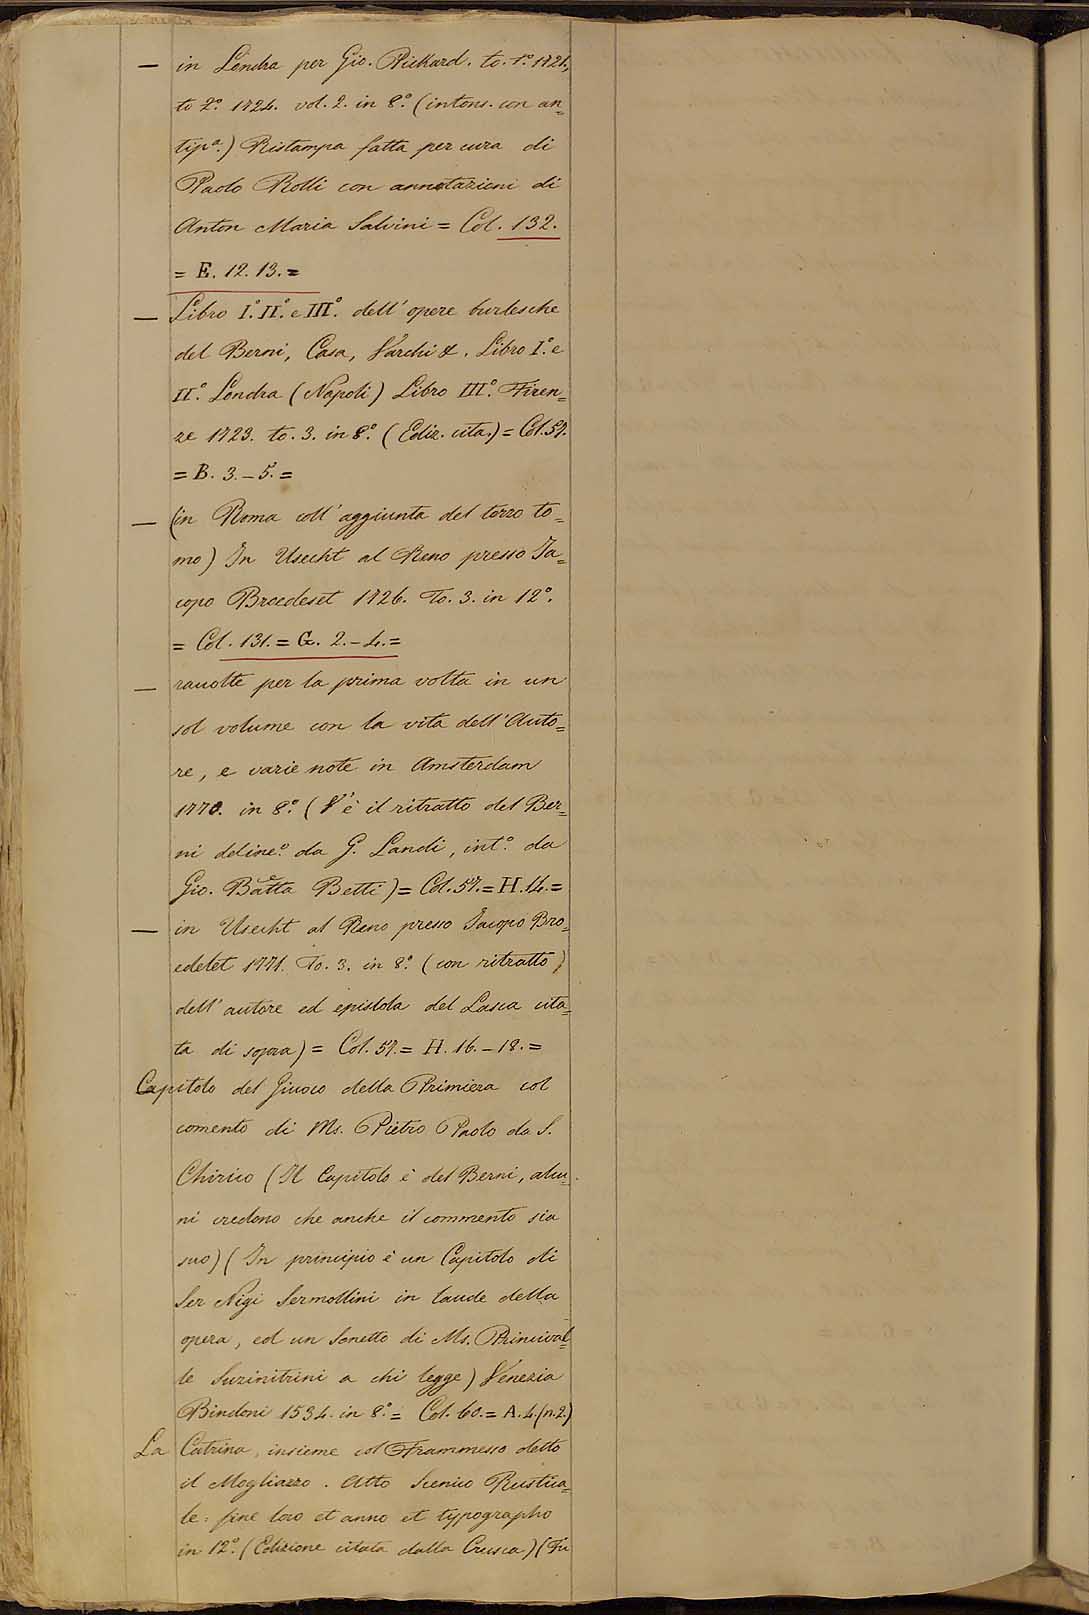 — in Londra per Gio. Pickard. to. 1.º 1721,
to 2.º 1724. vol. 2. in 8.º (intons. con an=
tip.ª) Ristampa fatta per cura di
Paolo Rolli con annotazioni di
Anton Maria Salvini = Col. 132.
= E. 12. 13. =
— Libro I.º II.º e III.º dell' opere burlesche
del Berni, Casa, Varchi &. Libro I.º e
II.º Londra (Napoli) Libro III.º Firen=
ze 1723. to. 3. in 8.º (Ediz. cita.) = Col. 57.
= B. 3. – 5. =
— (in Roma coll' aggiunta del terzo to=
mo) In Usecht al Reno presso Ja=
copo Broedeset 1726. To. 3. in 12.º
= Col. 131. = G. 2. – 4. =
— raccolte per la prima volta in un
sol volume con la vita dell' Auto=
re, e varie note in Amsterdam
1770. in 8.º (V'è il ritratto del Ber=
ni deline.º da G. Landi, int.º da
Gio. Batta Betti) = Col. 57. = H. 14. =
— in Usecht al Reno presso Jacopo Bro=
edelet 1771. To. 3. in 8.º (con ritratto
dell' autore ed epistola del Lasca cita=
ta di sopra) = Col. 57. = H. 16. – 18. =
Capitolo del Giuoco della Primiera col
comento di Ms. Pietro Paolo da S.
Chirico (Il Capitolo è del Berni, alcu=
ni credono che anche il commento sia
suo) (In principio è un Capitolo di
Ser Nigi Sermollini in laude della
opera, ed un Sonetto di Ms. Princival=
le Surinitrini a chi legge) Venezia
Bindoni 1534. in 8.º = Col. 60. = A. 4. (n. 2.)
La Catrina, insieme col Frammesso detto
il Mogliazzo. Atto Scenico Rustica=
le: sine loco et anno et typographo
in 12.º (Edizione citata dalla Crusca) (Fu